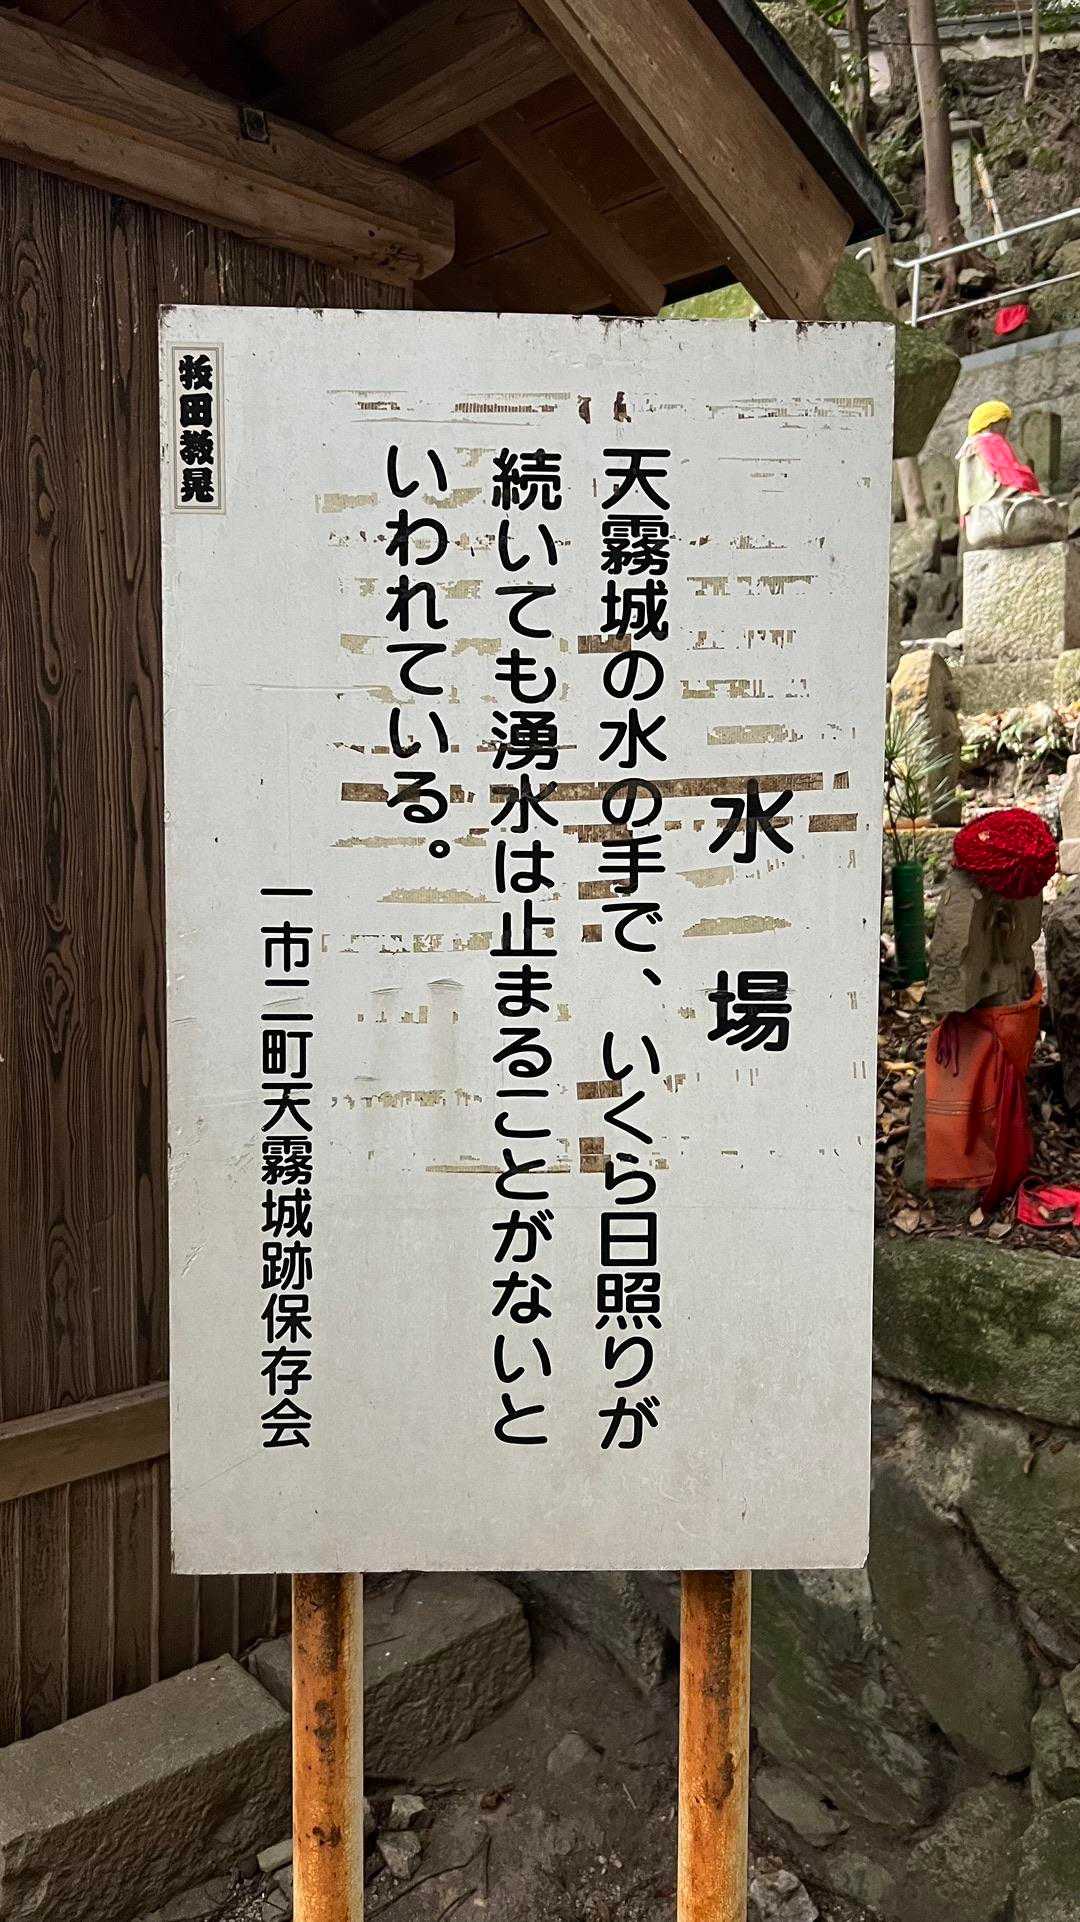 水場
天霧城の水の手で、いくら日照りが
続いても湧水は止まることがないと
いわれている。
一市二町天霧城跡保存会
牧田教晃